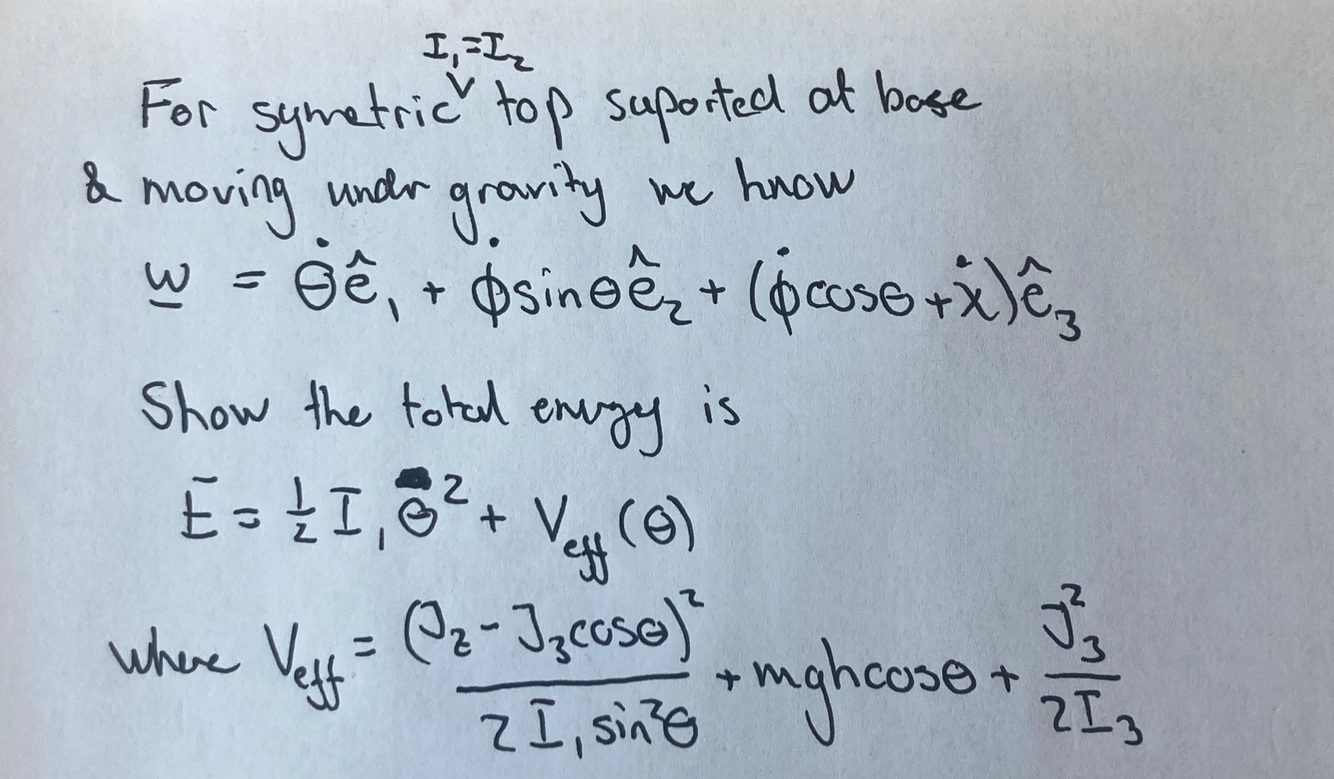 I₁=I₂
For symetric ∨ top suported at base
& moving undr gravity we know
w̲ = θ̇ê₁ + φ̇sinθê₂ + (φ̇cosθ+ẋ)ê₃
Show the total enrgy is
E = ½ I₁ θ̇² + V_eff (θ)
where V_eff = (J_z - J₃cosθ)² / 2 I₁ sin²θ + mghcosθ + J₃² / 2I₃